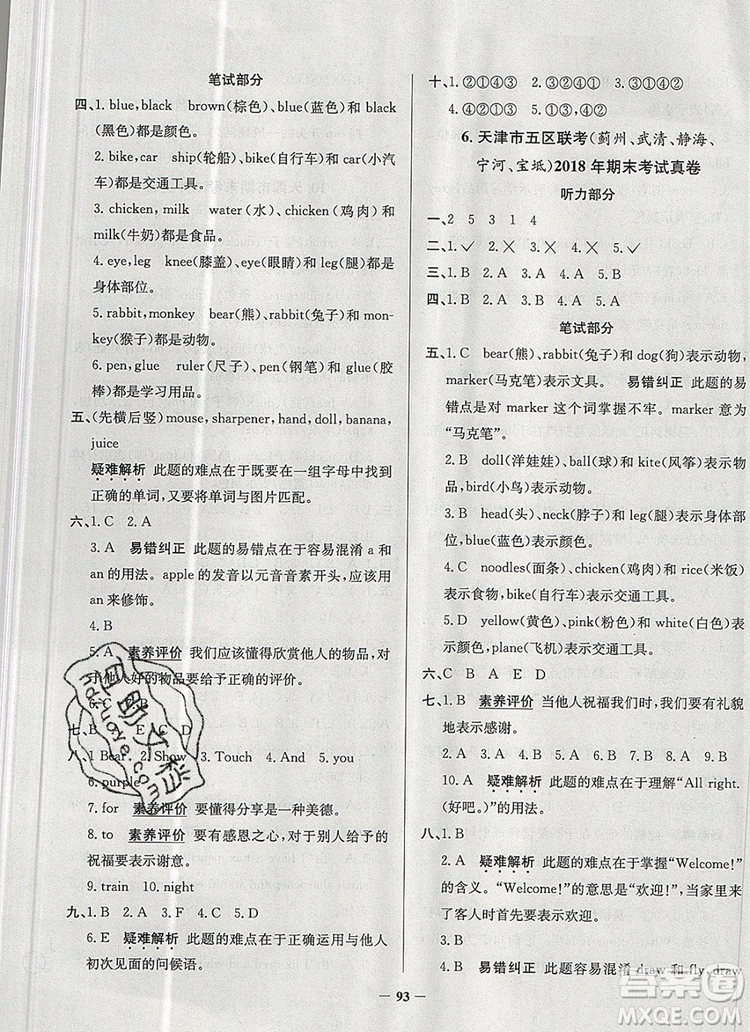 笔试部分
四、1. blue, black　brown(棕色)、blue(蓝色)和 black
(黑色)都是颜色。
2. bike, car　ship(轮船)、bike(自行车)和 car(小汽
车)都是交通工具。
3. chicken, milk　water(水)、chicken(鸡肉)和
milk(牛奶)都是食品。
4. eye, leg　knee(膝盖)、eye(眼睛)和 leg(腿)都是
身体部位。
5. rabbit, monkey　bear(熊)、rabbit(兔子)和 mon-
key(猴子)都是动物。
6. pen, glue　ruler(尺子)、pen(钢笔)和 glue(胶
棒)都是学习用品。
五、(先横后竖)mouse, sharpener, hand, doll, banana,
juice
疑难解析　此题的难点在于既要在一组字母中找到
正确的单词,又要将单词与图片匹配。
六、1. C　2. A
3. A　易错纠正　此题的易错点在于容易混淆 a 和
an 的用法。apple 的发音以元音音素开头,应该用
an 来修饰。
4. B
5. A　素养评价　我们应该懂得欣赏他人的物品,对
于他人好的物品要给予正确的评价。
6. C
八、1. Bear　2. Show　3. Touch　4. And　5. you
6. purple
7. for　素养评价　要懂得分享是一种美德。
8. to　素养评价　要有感恩之心,对于别人给予的
祝福要表示谢意。
9. train　10. night
九、1. B　2. A　3. F　4. C　5. D
6. E　疑难解析　此题的难点在于正确运用与他人
初次见面的问候语。
十、1. ②①④③　2. ①③④②　3. ②①④③
4. ②①④③　5. ①③④②
6. 天津市五区联考(蓟州、武清、静海、
宁河、宝坻)2018 年期末考试真卷
听力部分
一、2　5　3　1　4
二、1. ✓　2. ✗　3. ✗　4. ✗　5. ✓
三、1. B　2. A　3. A　4. A　5. B
四、1. B　2. A　3. B　4. A　5. A
笔试部分
五、1. C　bear(熊)、rabbit(兔子)和 dog(狗)表示动物,
marker(马克笔)表示文具。　易错纠正　此题的易
错点在于对 marker 这个词掌握不牢。marker 意为
“马克笔”。
2. B　doll(洋娃娃)、ball(球)和 kite(风筝)表示玩
品,bird(小鸟)表示动物。
3. B　head(头)、neck(脖子)和 leg(腿)表示身体部
位,brown(棕色)表示颜色。
4. C　noodles(面条)、chicken(鸡肉)和 rice(米饭)
表示食物,bike(自行车)表示交通工具。
5. D　yellow(黄色)、pink(粉色)和 white(白色)
表示颜色,plane(飞机)表示交通工具。
六、C　B　A　E　D
七、1. B　素养评价　当他人祝福我们时,我们要有礼貌
地表示感谢。
2. B　3. A　4. B　5. A　6. A　7. A　8. B　9. A
10. A　疑难解析　此题的难点在于理解“All right.
(好吧。)”的用法。
八、1. B
2. A　疑难解析　此题的难点在于掌握“Welcome!”
的含义。“Welcome!”的意思是“欢迎!”,当家里来
了客人时首先要表示欢迎。
3. B
4. B　易错纠正　此题容易混淆 draw 和 fly, draw
— 93 —
答案圈
MXQE.COM